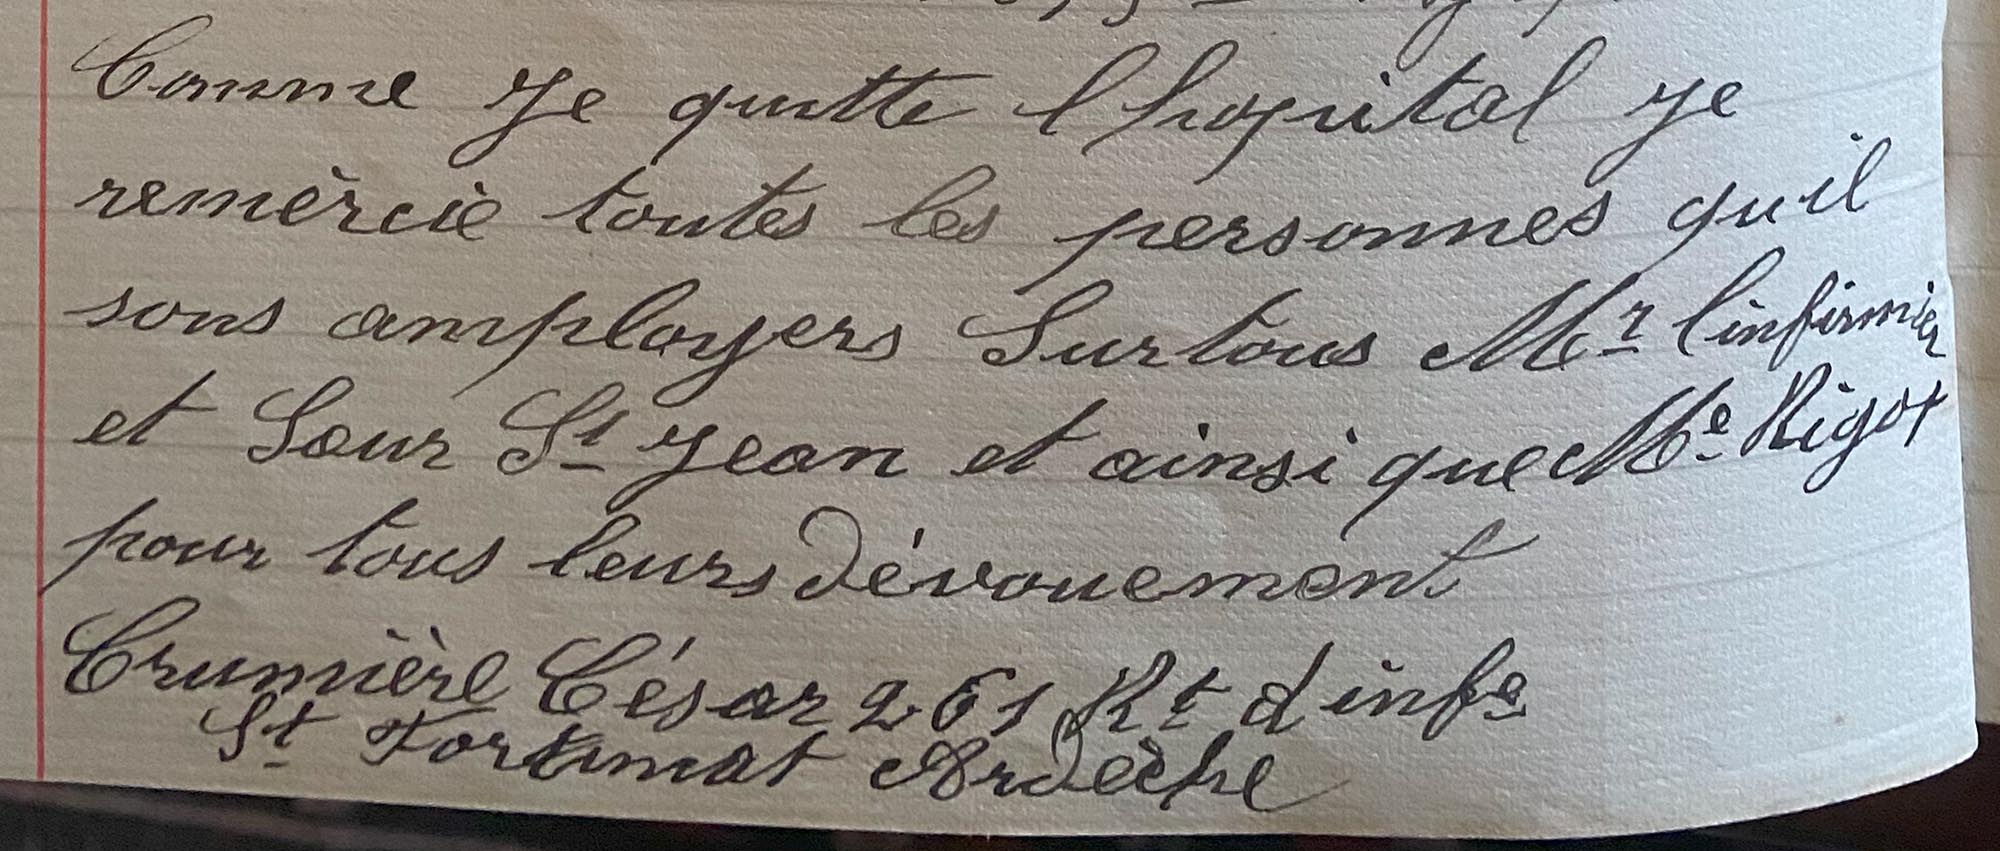 Comme Je quitte l hopital je
remèrcie toutes les personnes quil
sons amployers Surtous Mr l'infirmier
et Sour St Jean et ainsi que Me Rigot
pour tous leurs Dévouement
Crumière César 261 Rt d infe
St Fortunat Ardèche